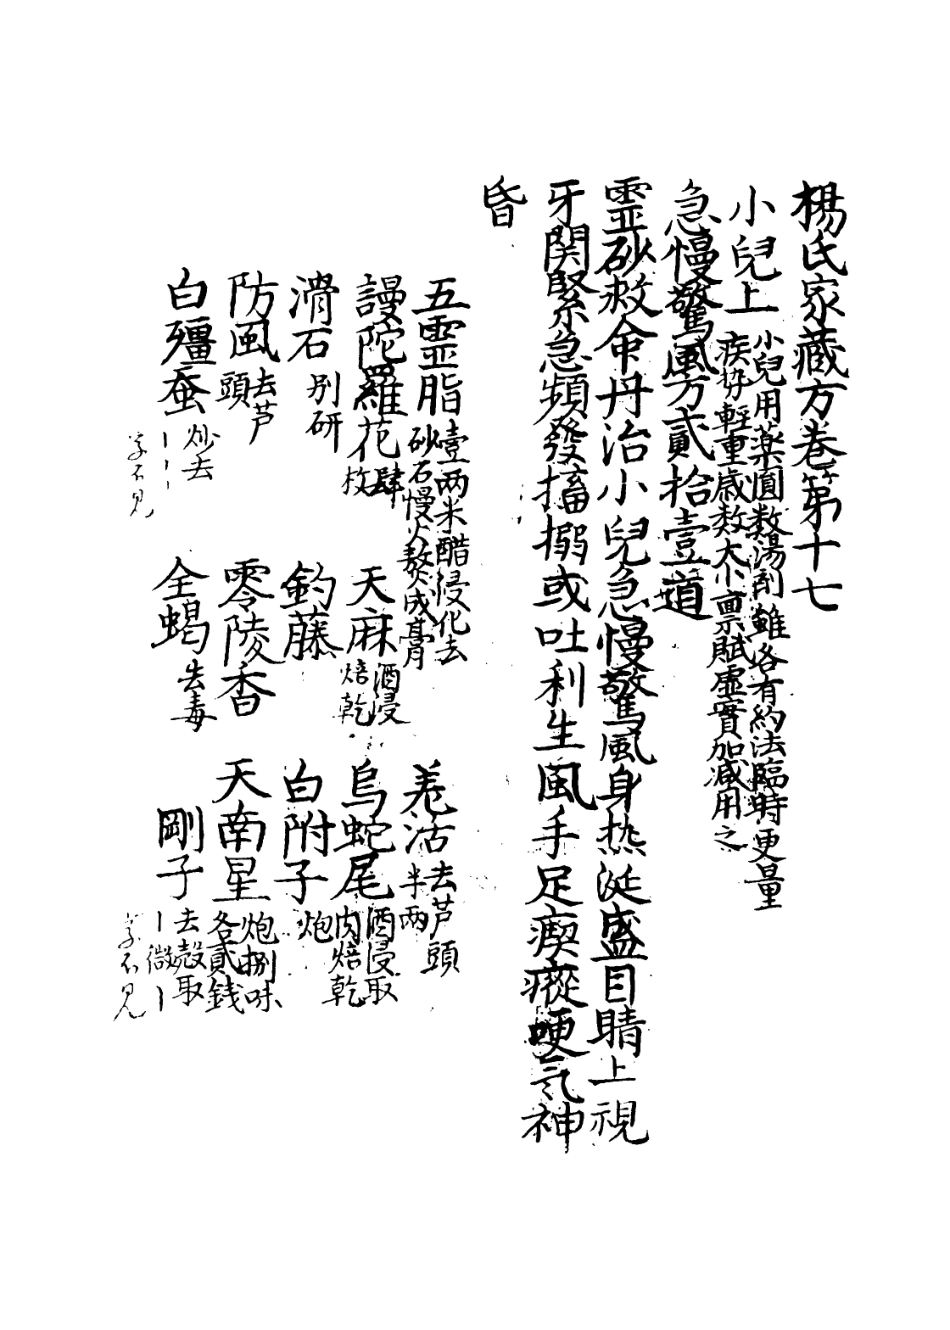 楊氏家藏方卷第十七
小兒上
小兒用薬圓数湯剤雖各有約法臨時更量
疾狀輕重歳数大小禀賦虛實加减用之
急慢驚風方貳拾壹道
霊砂救命丹治小兒急慢驚風身热涎盛目睛上視
牙関緊急頻發搐搦或吐利生風手足瘈瘲哽気神
昏
五霊脂 壹両米醋浸化去
砂石慢火熬成膏
羗活 去芦頭
半両
謾陀羅花 肆
枚
天麻 酒浸
焙乾
烏蛇尾 酒浸取
肉焙乾
滑石 別研
釣藤
白附子 炮
防風 去芦
頭
零陵香
天南星 炮捌味
各貳錢
白殭蚕 炒去
字不見
全蝎 去毒
剛子 去殼取
微
字不見